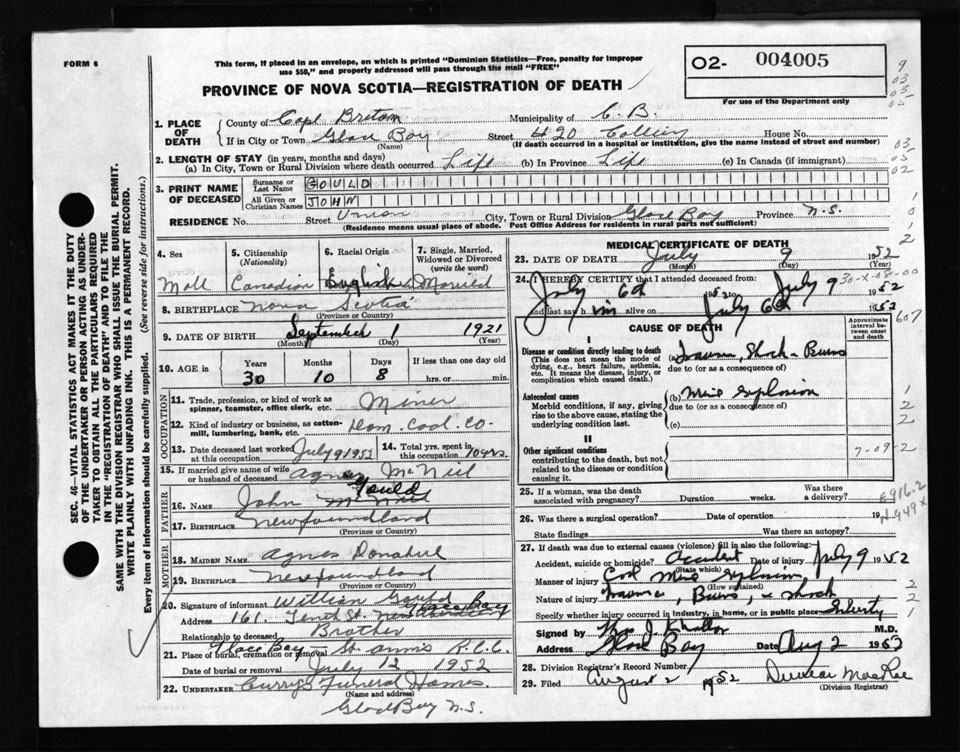 FORM 6
This form, if placed in an envelope, on which is printed "Dominion Statistics—Free, penalty for improper
use $50," and properly addressed will pass through the mail "FREE"
O2- 004005
For use of the Department only
PROVINCE OF NOVA SCOTIA—REGISTRATION OF DEATH
1. PLACE OF DEATH
County of Cape Breton Municipality of C.B.
If in City or Town Glace Bay Street 420 Colliery House No.
(Name) (If death occurred in a hospital or institution, give the name instead of street and number)
2. LENGTH OF STAY (in years, months and days)
(a) In City, Town or Rural Division where death occurred Life (b) In Province Life (c) In Canada (if immigrant)
3. PRINT NAME OF DECEASED
Surname or Last Name GOULD
All Given or Christian Names JOHN
RESIDENCE No. Street Union City, Town or Rural Division Glace Bay Province N.S.
(Residence means usual place of abode. Post Office Address for rural parts not sufficient)
4. Sex 5. Citizenship (Nationality) 6. Racial Origin 7. Single, Married, Widowed or Divorced (write the word)
Male Canadian English Married
8. BIRTHPLACE Nova Scotia
(Province or Country)
9. DATE OF BIRTH September 1 1921
(Month) (Day) (Year)
10. AGE in Years Months Days If less than one day old
30 10 8 hrs. or min.
OCCUPATION
11. Trade, profession, or kind of work as spinner, teamster, office clerk, etc. Miner
12. Kind of industry or business, as cotton-mill, lumbering, bank, etc. Dom. Coal. Co.
13. Date deceased last worked at this occupation July 9 1952 14. Total yrs. spent in this occupation 10 yrs.
15. If married give name of wife or husband of deceased Agnes McNeil
FATHER
16. Name John Gould
17. BIRTHPLACE Newfoundland
(Province or Country)
MOTHER
18. MAIDEN NAME Agnes
19. BIRTHPLACE Newfoundland
(Province or Country)
20. Signature of informant William Gould
Address 161. Tenth St. Glace Bay
Relationship to deceased Brother
21. Place of burial, cremation or removal Glace Bay St. Ann's R.C.C.
Date of burial or removal July 12 1952
22. UNDERTAKER Curry's Funeral Homes.
(Name and address)
Glace Bay N.S.
MEDICAL CERTIFICATE OF DEATH
23. DATE OF DEATH July 9 1952
(Month) (Day) (Year)
24. I HEREBY CERTIFY that I attended deceased from:
July 1952 July 9 1952
and last saw h im alive on July 1952
CAUSE OF DEATH
Approximate interval between onset and death
I
Disease or condition directly leading to death
(This does not mean the mode of dying, e.g., heart failure, asthenia, etc. It means the disease, injury, or complication which caused death.)
(a) Trauma, Shock - Burns
due to (or as a consequence of)
Antecedent causes
Morbid conditions, if any, giving rise to the above cause, stating the underlying condition last.
(b) Mine Explosion
due to (or as a consequence of)
(c)
II
Other significant conditions
contributing to the death, but not related to the disease or condition causing it.
7-09-2
25. If a woman, was the death associated with pregnancy? Duration weeks. Was there a delivery?
26. Was there a surgical operation? Date of operation 19
State findings Was there an autopsy?
27. If death was due to external causes (violence) fill in also the following:
Accident, suicide or homicide? Accident Date of injury July 9 1952
(State which)
Manner of injury Coal Mine Explosion
(How sustained)
Nature of injury Trauma, Burns, & Shock
Specify whether injury occurred in industry, in home, or in public place
Signed by M.D.
Address Glace Bay Date Aug 2 195
28. Division Registrar's Record Number
29. Filed August 2 1952
(Division Registrar)
SEC. 46—VITAL STATISTICS ACT MAKES IT THE DUTY
OF THE UNDERTAKER OR PERSON ACTING AS UNDER-
TAKER TO OBTAIN ALL THE PARTICULARS REQUIRED
IN THE "REGISTRATION OF DEATH" AND TO FILE THE
SAME WITH THE DIVISION REGISTRAR WHO SHALL ISSUE THE BURIAL PERMIT.
WRITE PLAINLY WITH UNFADING INK. THIS IS A PERMANENT RECORD.
Every item of Information should be carefully supplied. (See reverse side for instructions.)